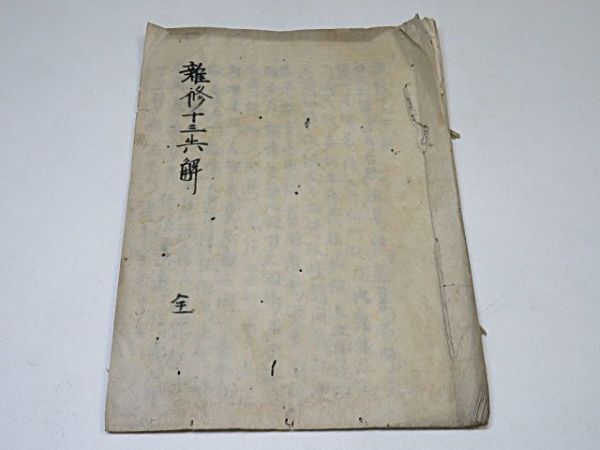 雜修十三失解
全